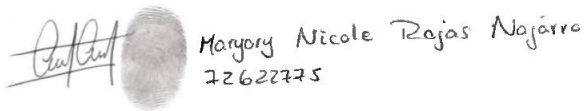 Maryory Nicole Rojas Najarro
72622775